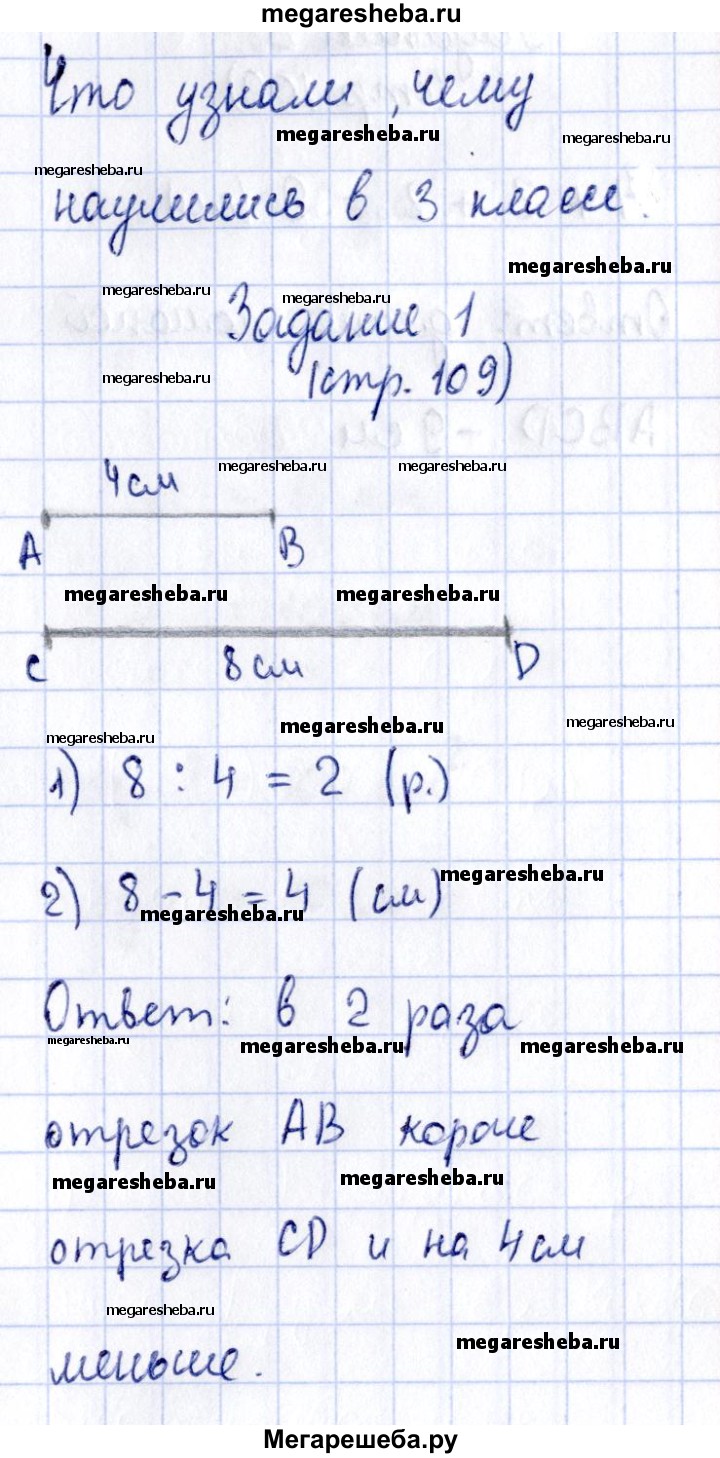 megaresheba.ru
Что узнали, чему
megaresheba.ru
megaresheba.ru
megaresheba.ru
научились в 3 классе.
megaresheba.ru
megaresheba.ru
megaresheba.ru
Задание 1
megaresheba.ru
(стр. 109)
megaresheba.ru
megaresheba.ru
megaresheba.ru
4 см
A B
megaresheba.ru
megaresheba.ru
C 8 см D
megaresheba.ru
megaresheba.ru
megaresheba.ru
1) 8 : 4 = 2 (р.)
megaresheba.ru
2) 8 - 4 = 4 (см)
megaresheba.ru
Ответ: в 2 раза
megaresheba.ru
megaresheba.ru
megaresheba.ru
отрезок AB короче
megaresheba.ru
megaresheba.ru
отрезка CD и на 4 см
megaresheba.ru
megaresheba.ru
меньше.
Мегарешеба.ру